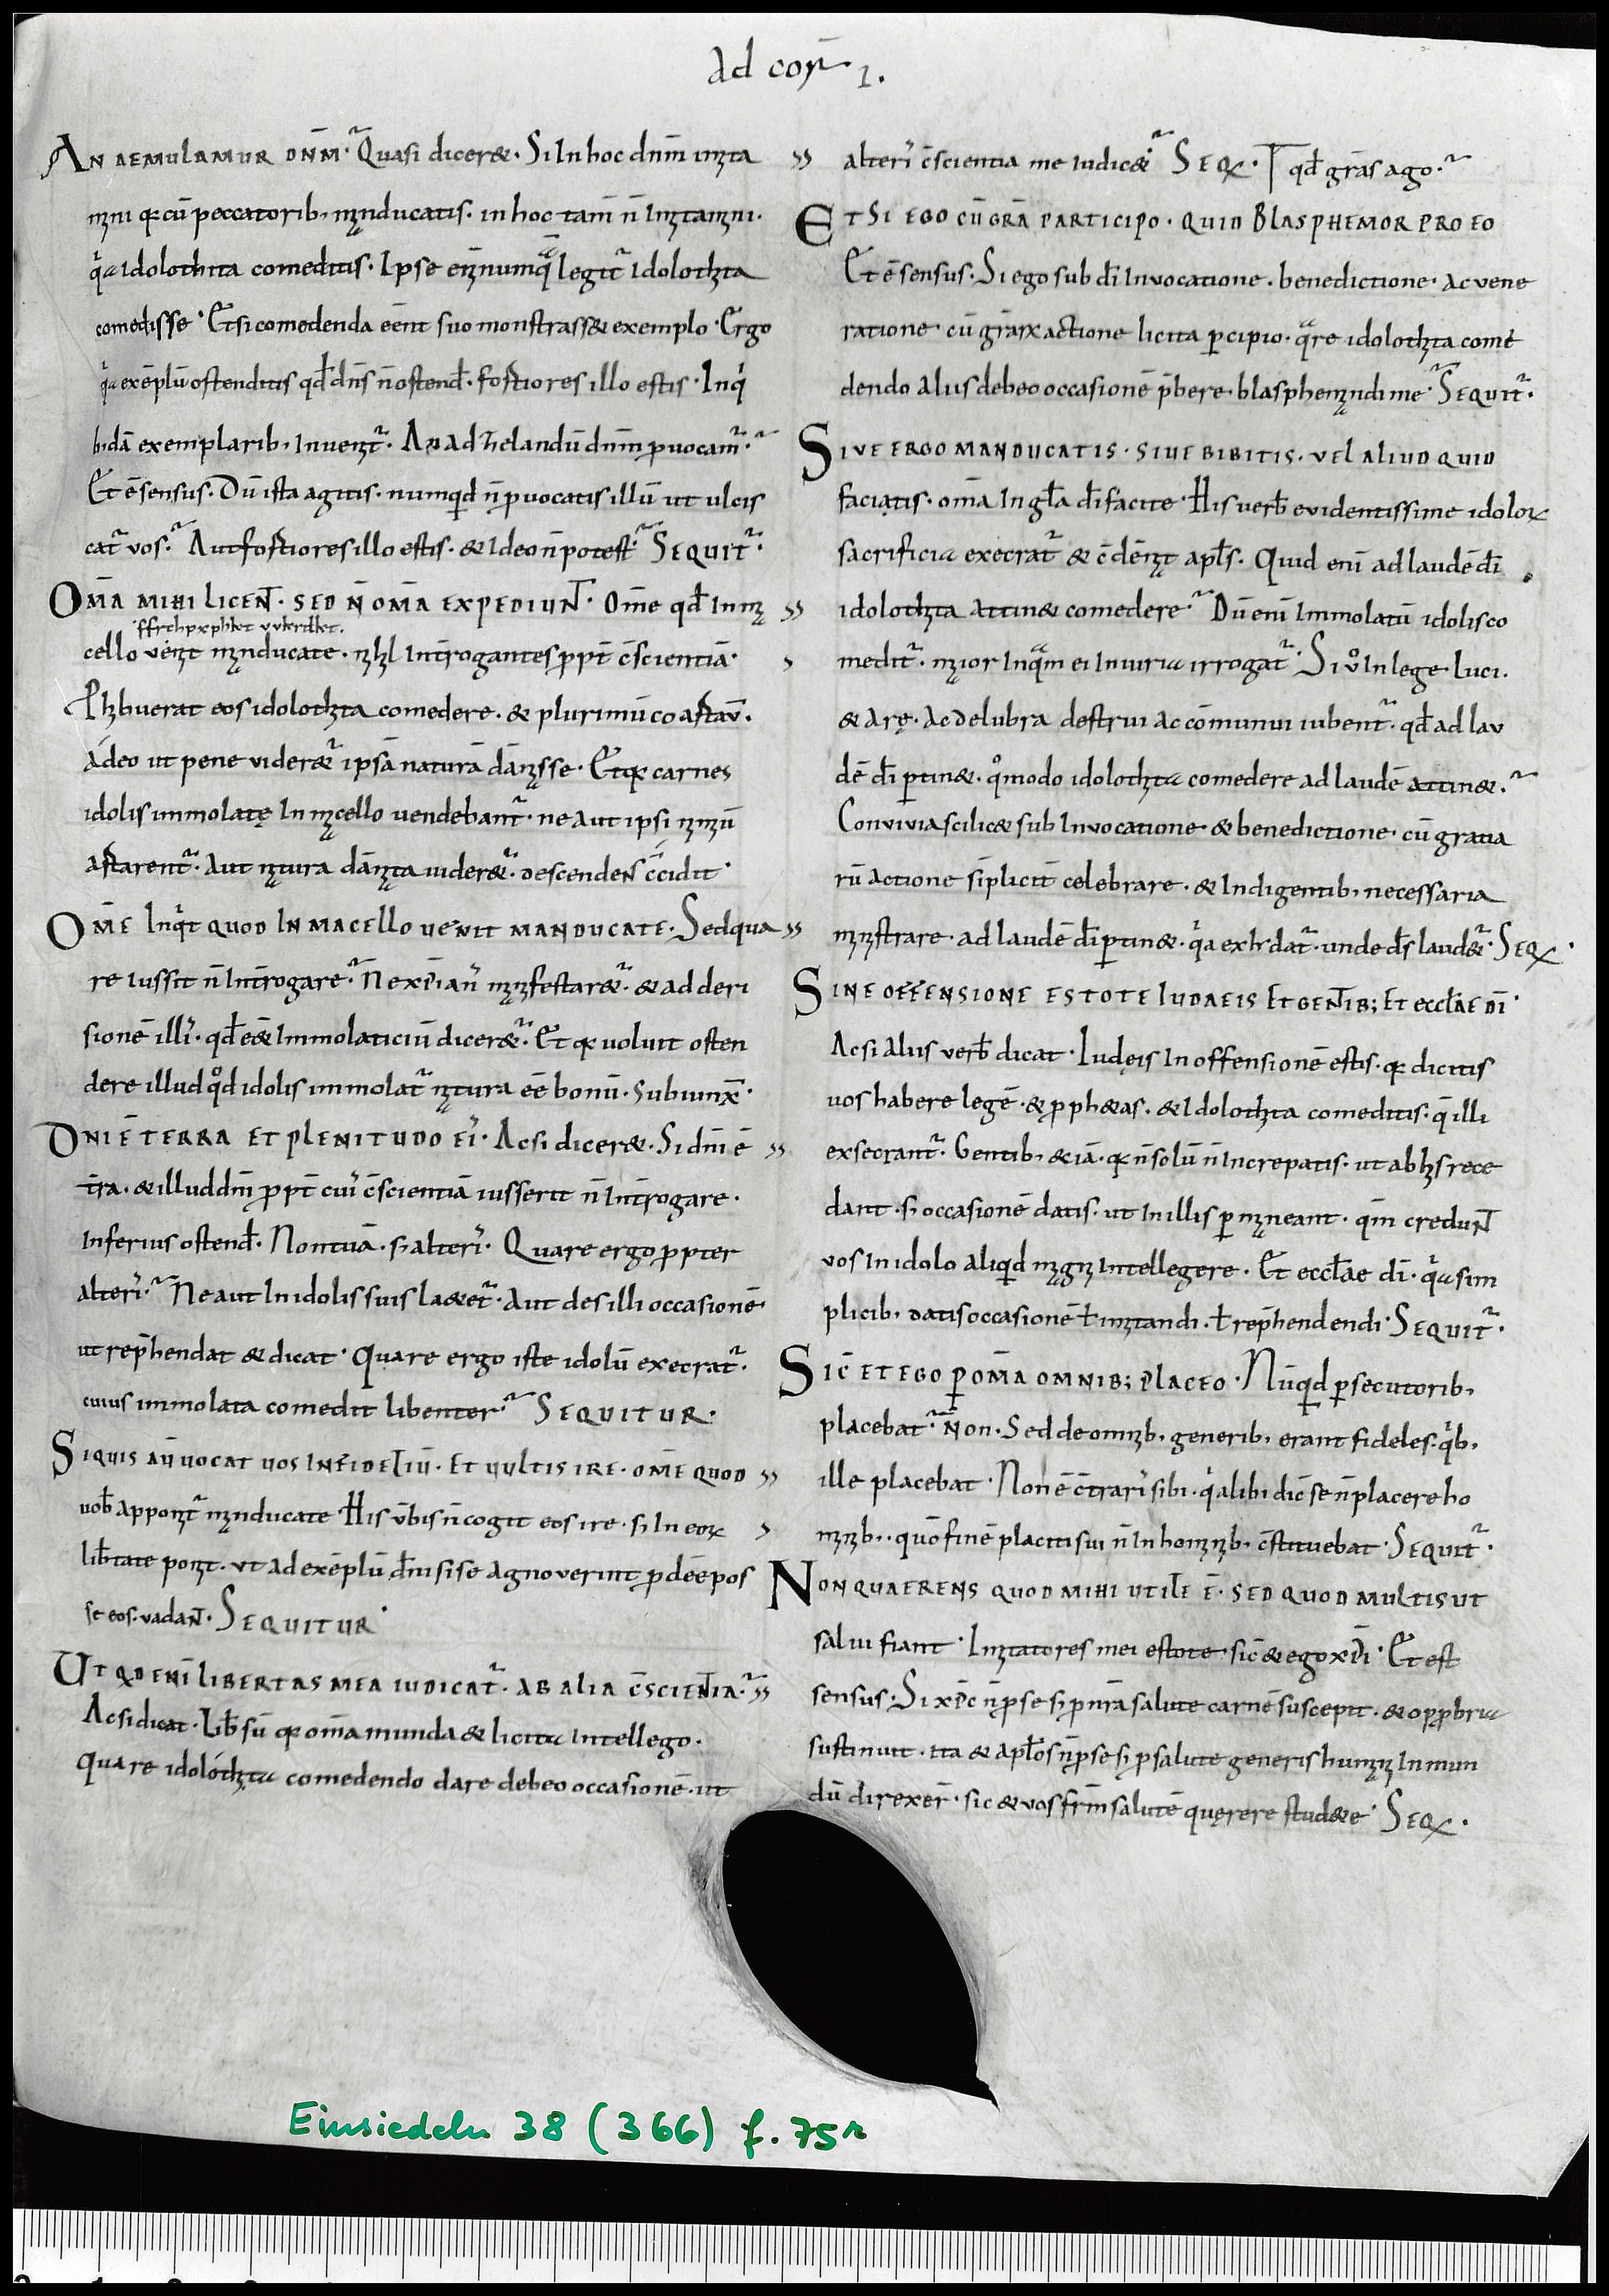 Ad cor̄ 1.
AN AEMULAMUR DN̄M. Quasi diceret. Si In hoc dn̄m imita
mini qꝫ cū peccatorib, manducatis. in hoc tam̄ n̄ Imitamini.
qͥa Idolothita comeditis. Ipse enim numqͣ̄ legit᷑ Idolothita
comedisse. Etsi comedenda eēnt suo monstrasset exemplo. Ergo
qͥa exēplū ostenditis qđ dn̄s n̄ ostenđ. fortiores illo estis. Inqͥ
bꝰdā exemplarib, Inuenit᷑. An ad zelandū dn̄m ꝓuocam᷑.
Et ē sensus. Dū ista agitis. numqͥd n̄ ꝓuocatis illū ut ulcis
cat᷑ vos. Aut fortiores illo estis. & Ideo n̄ potest. SEQUIT᷑.
OM̄A MIHI LICEN̄T. SED N̄ OM̄A EXPEDIUN̄T. Om̄e qđ In ma
ffrthpxphkt vvkrdkt.
cello venit manducate. nihil Int̄rogantes ꝓpt̄ c̄scientiā.
Phibuerat eos idolothita comedere. & plurimū coartav̄.
Adeo ut pene videret᷑ ipsā naturā dānasse. Et qꝫ carnes
idolis immolatę In macello vendebant᷑. ne aut ipsi nimiū
artarent᷑. Aut natura dānata uideret᷑. descenden̄s c̄cidit.
OM̄E Inqͥt QUOD IN MACELLO VENIT MANDUCATE. Sed qua
re iussit n̄ Int̄rogare. Ne xp̄ianꝰ manifestaret᷑. & ad deri
sionē illiꝰ. qđ eēt Immolaticiū diceret᷑. Et qꝫ uoluit osten
dere illud qͦd idolis immolat᷑ natura eē bonū. Subiunx̄.
DN̄I Ē TERRA ET PLENITUDO EIꝰ. Acsi diceret. Si dn̄i ē
t̄ra. & illud dn̄i ꝓpt̄ cuiꝰ c̄scientiā iusserit n̄ Int̄rogare.
Inferius ostenđ. Non tuā. s; alteriꝰ. Quare ergo ꝓpter
alteriꝰ. Ne aut In idolis suis laetet᷑. Aut des illi occasionē
ut rep̄hendat & dicat. Quare ergo iste idolū execrat᷑.
cuius immolata comedit libenter. SEQUITUR.
SIQUIS AŪ VOCAT VOS INFIDELIŪ. ET VULTIS IRE. OM̄E QUOD
uoƀ apponit᷑ manducate. His v̄bis n̄ cogit eos ire. s; In eoꝝ
liƀtate ponit. ut ad exēplū dn̄i si se agnoverint ꝓdeē pos
se eos. vadan̄t. SEQUITUR.
UT QD ENĪ LIBERTAS MEA IUDICAT᷑. AB ALIA C̄SCIEN̄TIA.
Acsi dicat. Liƀ sū qꝫ om̄a munda & licita Intellego.
Quare idolothita comedendo dare debeo occasionē. ut
alteriꝰ c̄scientia me iudicet. SEQ. qđ grās ago.
ET SI EGO CŪ GRĀ PARTICIPO. QUID BLASPHEMOR PRO EO
Et ē sensus. Si ego sub dī Invocatione. benedictione. Ac vene
ratione cū grāꝝ actione licita ꝑcipio. qͣre idolothita come
dendo aliis debeo occasionē p̄bere. blasphemandi me. SEQUIT᷑.
SIVE ERGO MANDUCATIS. SIVE BIBITIS. VEL ALIUD QUID
faciatis. om̄a In gła dī facite. His verƀ evidentissime idoloꝝ
sacrificia execrat᷑ & c̄dēnat apłs. Quid enī ad laudē dī
idolothita attinet comedere. Dū enī Immolatū idolis co
medit᷑. maior Inqͣm ei Iniuria irrogat᷑. Si vͦ In lege luci.
& arę. Ac delubra destrui ac cōmunui iubent᷑. qđ ad lau
dē dī ꝑtinet. qͦmodo idolothita comedere ad laudē attinet.
Convivia scilicet sub Invocatione & benedictione. cū gratia
rū actione sīplicit̄ celebrare. & Indigentib, necessaria
ministrare. ad laudē dī ꝑtinet. qͥa exhꝰdat᷑. unde ds̄ laudet᷑. SEQ.
SINE OFFENSIONE ESTOTE IUDAEIS ET GEN̄TIB; ET ECCŁAE DĪ.
Acsi aliis verƀ dicat. Iudęis In offensionē estis. qꝫ dicitis
uos habere legē. & ꝓphetas. & Idolothita comeditis. q̄ illi
exsecrant᷑. Gentib, etiā. qꝫ n̄ solū n̄ Increpatis. ut ab his rece
dant. s; occasionē datis. ut In illis ꝑmaneant. qm̄ credun̄t
vos In idolo aliqͥd magni Intellegere. Et eccłae dī. qͥa sim
plicib, datis occasionē ł imitandi. ł rep̄hendendi. SEQUIT᷑.
SIC̄ ET EGO Ꝑ OM̄A OMNIB; PLACEO. Nūqͥd ꝑsecutorib,
placebat. Non. Sed de omnib, generib, erant fideles. qͥb,
ille placebat. Non ē c̄trariꝰ sibi. qͥ alibi dic̄ se n̄ placere ho
minib,. quō finē placiti sui n̄ In hominib, c̄stituebat. SEQUIT᷑.
NON QUAERENS QUOD MIHI UTILE Ē. SED QUOD MULTIS UT
salui fiant. Imitatores mei estote. sic̄ & ego xp̄i. Et est
sensus. Si xp̄c n̄ ꝓ se s; ꝓ nr̄a salute carnē suscepit. & opꝓbria
sustinuit. ita & apłos n̄ ꝓ se s; ꝓ salute generis humani In mun
dū direxer̄. sic & vos fr̄m salutē quęrere studete. SEQ.
Einsiedeln 38 (366) f. 75r